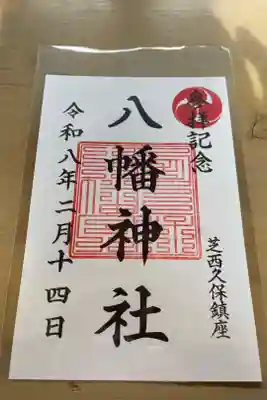 参拝記念
芝西久保鎮座
八幡神社
令和八年二月十四日